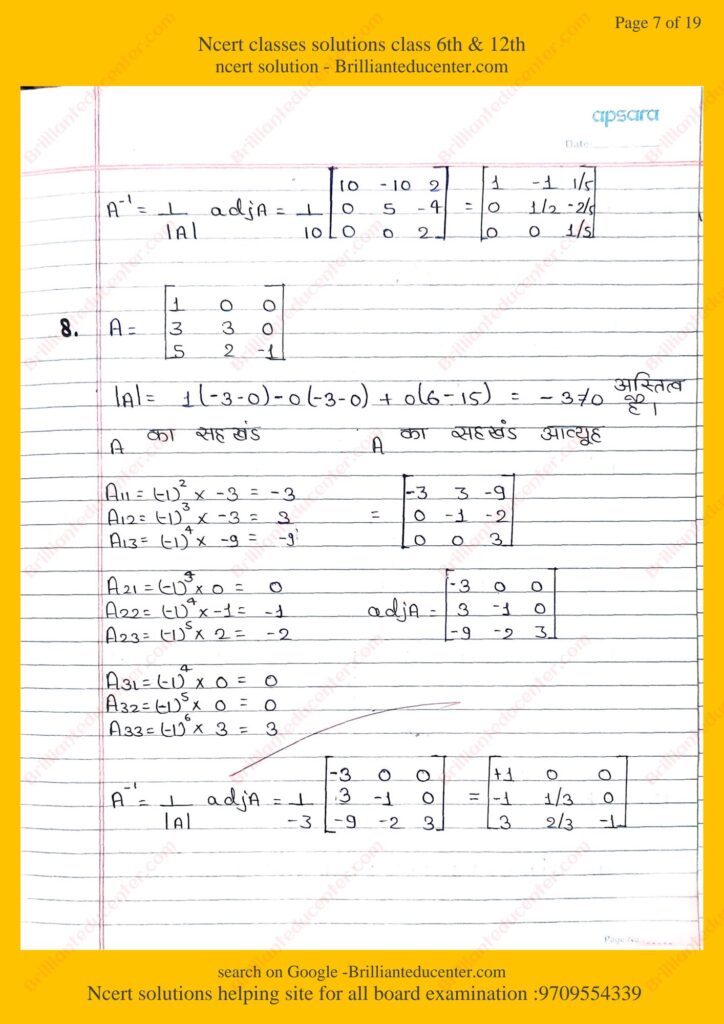 Page 7 of 19
Ncert classes solutions class 6th & 12th
ncert solution - Brillianteducenter.com
apsara
Date
A⁻¹ = 1/|A| adjA = 1/10 [10 -10 2; 0 5 -4; 0 0 2] = [1 -1 1/5; 0 1/2 -2/5; 0 0 1/5]
8. A = [1 0 0; 3 3 0; 5 2 -1]
|A| = 1(-3-0)-0(-3-0) + 0(6-15) = -3≠0 अस्तित्व है।
A का सहखंड
A का सहखंड आव्यूह
A11 = (-1)² × -3 = -3
A12 = (-1)³ × -3 = 3
A13 = (-1)⁴ × -9 = -9
= [-3 3 -9; 0 -1 -2; 0 0 3]
A21 = (-1)³ × 0 = 0
A22 = (-1)⁴ × -1 = -1
A23 = (-1)⁵ × 2 = -2
adjA = [-3 0 0; 3 -1 0; -9 -2 3]
A31 = (-1)⁴ × 0 = 0
A32 = (-1)⁵ × 0 = 0
A33 = (-1)⁶ × 3 = 3
A⁻¹ = 1/|A| adjA = 1/-3 [-3 0 0; 3 -1 0; -9 -2 3] = [+1 0 0; -1 1/3 0; 3 2/3 -1]
Page No.
search on Google -Brillianteducenter.com
Ncert solutions helping site for all board examination :9709554339